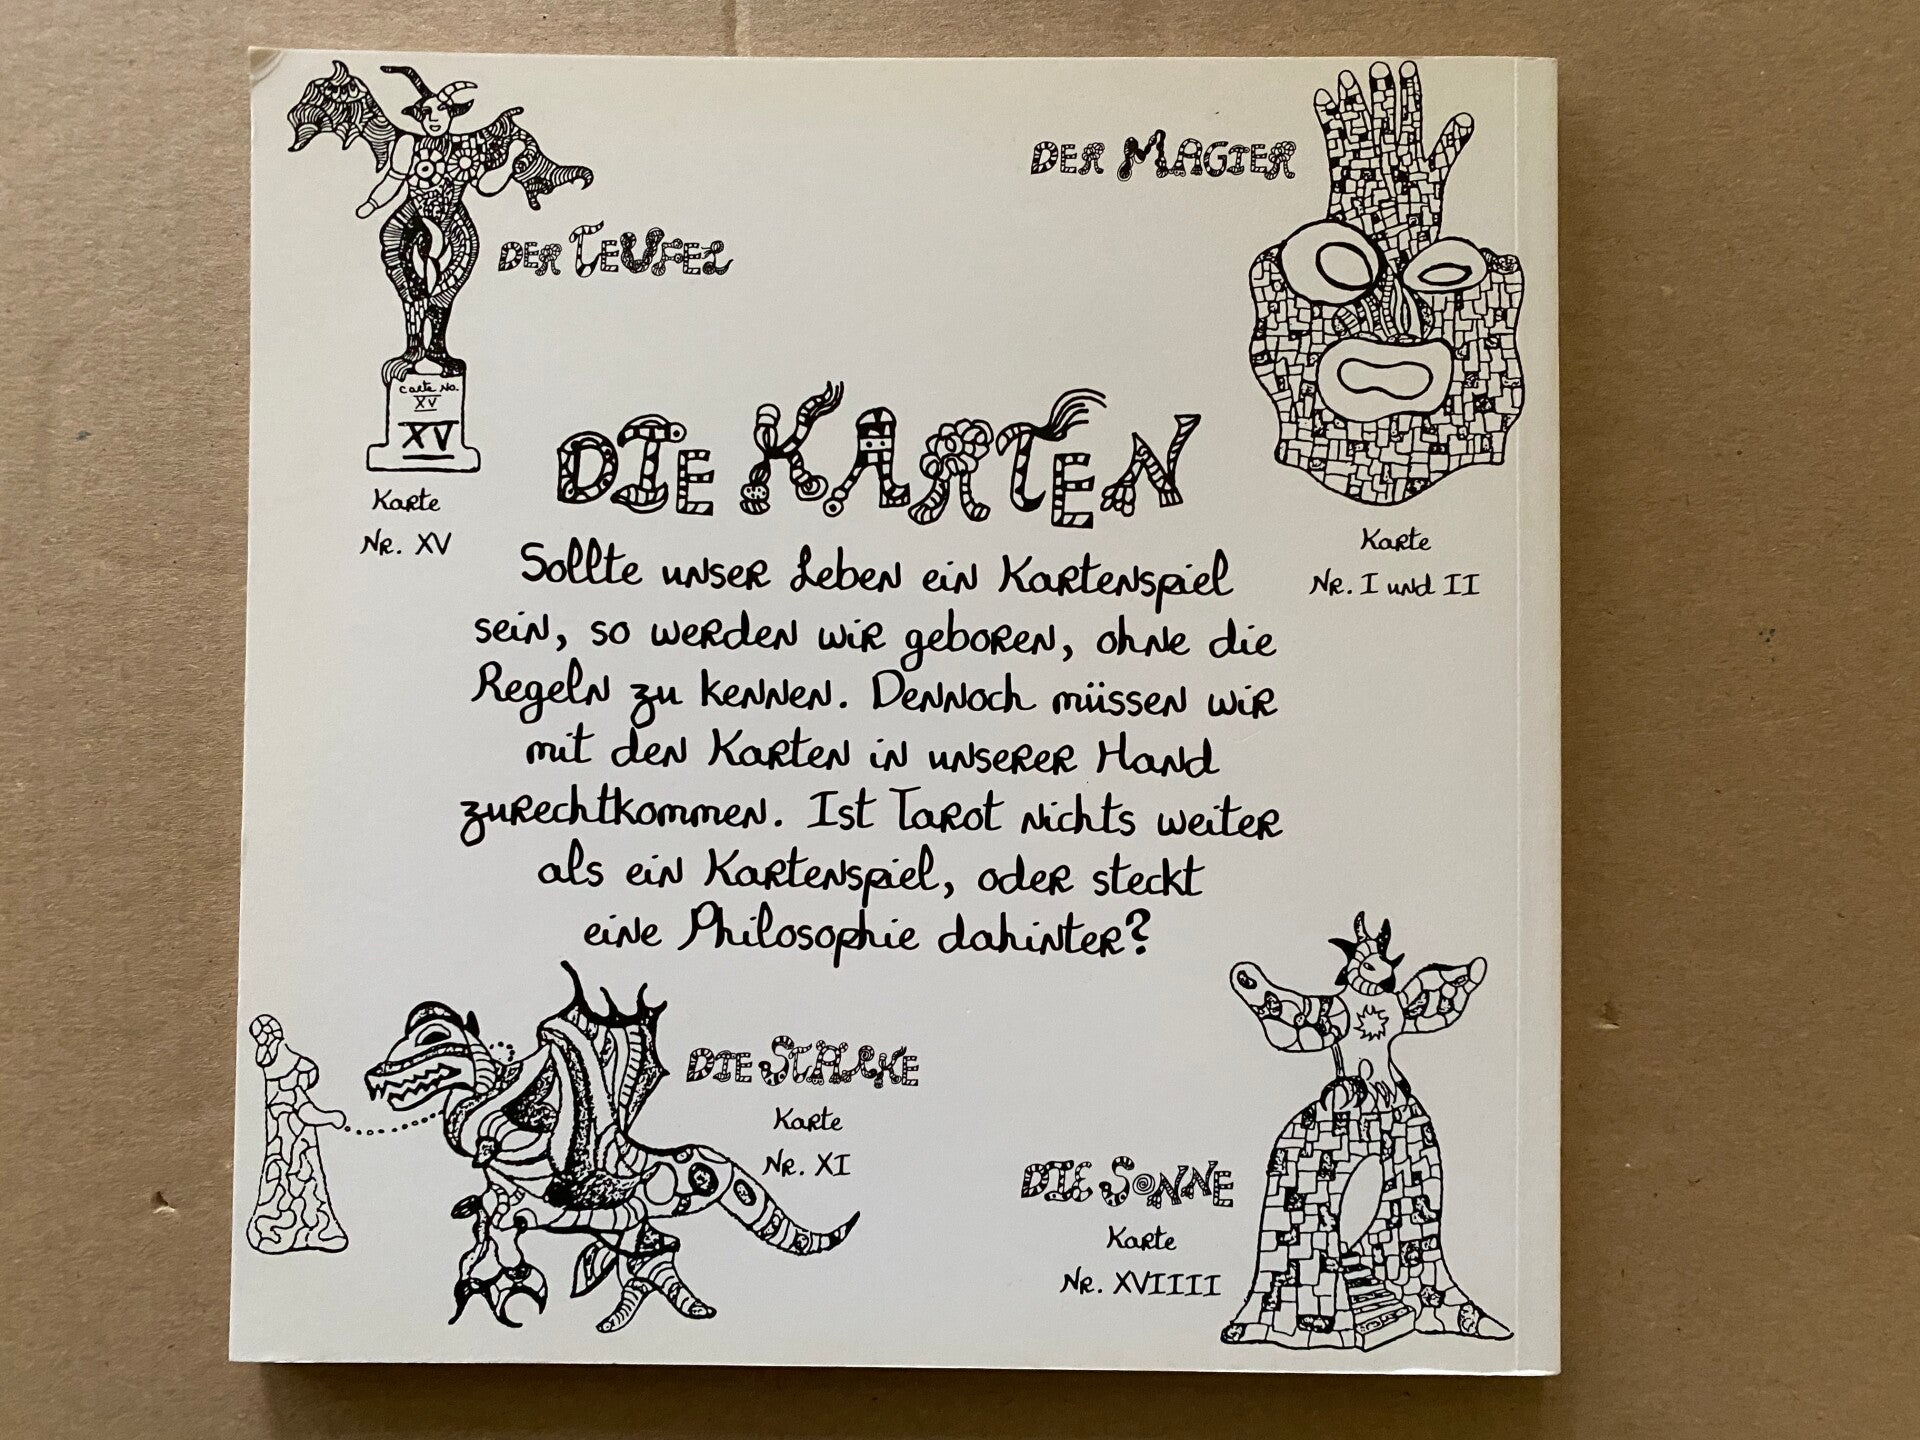 DER MAGIER
DER TEUFEL
Carte No.
XV
XV
Karte
Nr. XV
Karte
Nr. I und II
DIE KARTEN
Sollte unser Leben ein Kartenspiel
sein, so werden wir geboren, ohne die
Regeln zu kennen. Dennoch müssen wir
mit den Karten in unserer Hand
zurechtkommen. Ist Tarot nichts weiter
als ein Kartenspiel, oder steckt
eine Philosophie dahinter?
DIE STÄRKE
Karte
Nr. XI
DIE SONNE
Karte
Nr. XVIIII